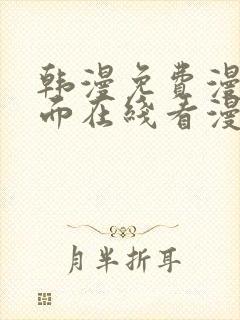 韩漫免费漫
而在线看漫
月半折耳